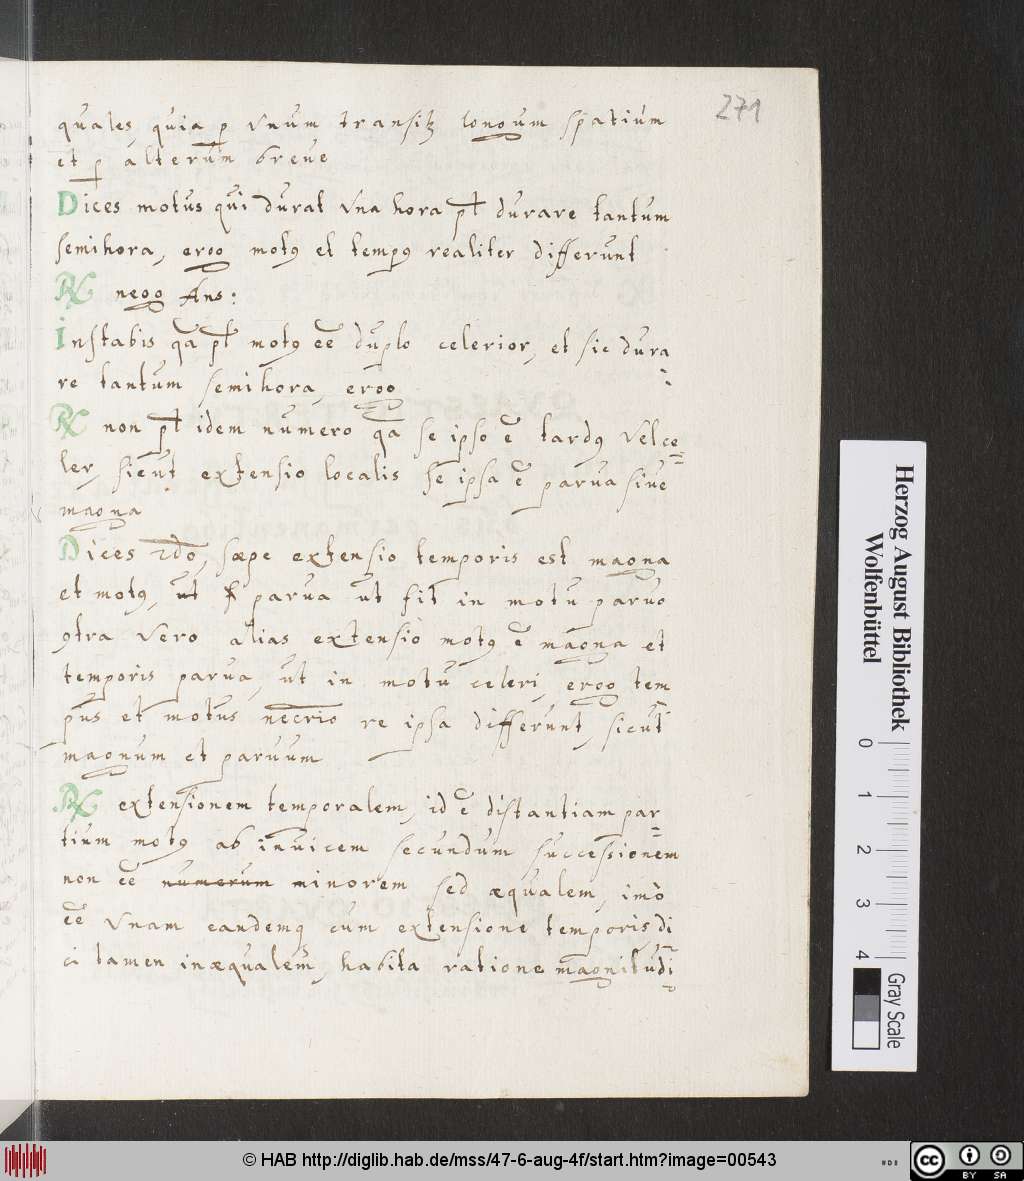 271
quales quia p vnum transitꝫ longum spatium
et p alterum breve
Dices motus qui durat vna hora pt̄ durare tantum
semihora, ergo motꝰ et tempꝰ realiter differunt
℟ nego Ans:
Instabis q̄a pt̄ motꝰ ēē duplo celerior, et sic dura
re tantum semihora, ergo
℟ non pt̄ idem numero q̄a se ipso ē tardꝰ vel ce=
ler, sicut extensio localis se ipsa ē parva sive
magna
Dices 2do, sæpe extensio temporis est magna
et motꝰ, parva ut fit in motu parvo
ꝯtra vero alias extensio motꝰ ē magna et
temporis parva, ut in motu celeri, ergo tem
pus et motus necrio re ipsa differunt, sicut
magnum et parvum
℟ extensionem temporalem, id ē distantiam par=
tium motꝰ ab invicem secundum successionem
non ēē numerum minorem sed æqualem, imò
ēē vnam eandemqꝫ cum extensione temporis di
ci tamen inæqualem, habita ratione magnitudi
Herzog August Bibliothek
Wolfenbüttel
0 1 2 3 4
Gray Scale
© HAB http://diglib.hab.de/mss/47-6-aug-4f/start.htm?image=00543
cc BY SA